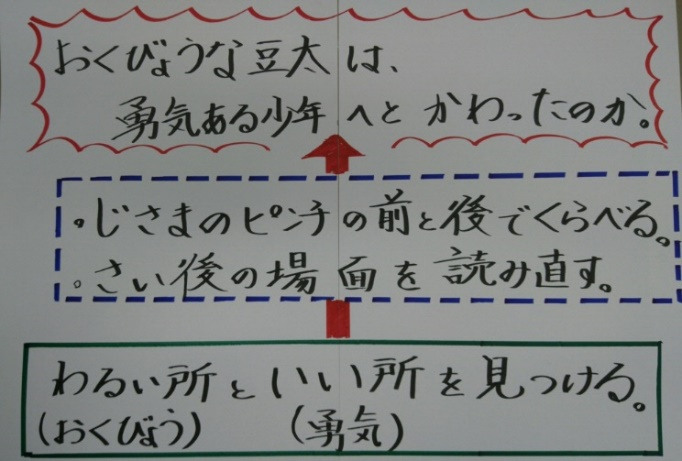 おくびょうな豆太は、
勇気ある少年へとかわったのか。
。じさまのピンチの前と後でくらべる。
。さい後の場面を読み直す。
わるい所といい所を見つける。
(おくびょう) (勇気)